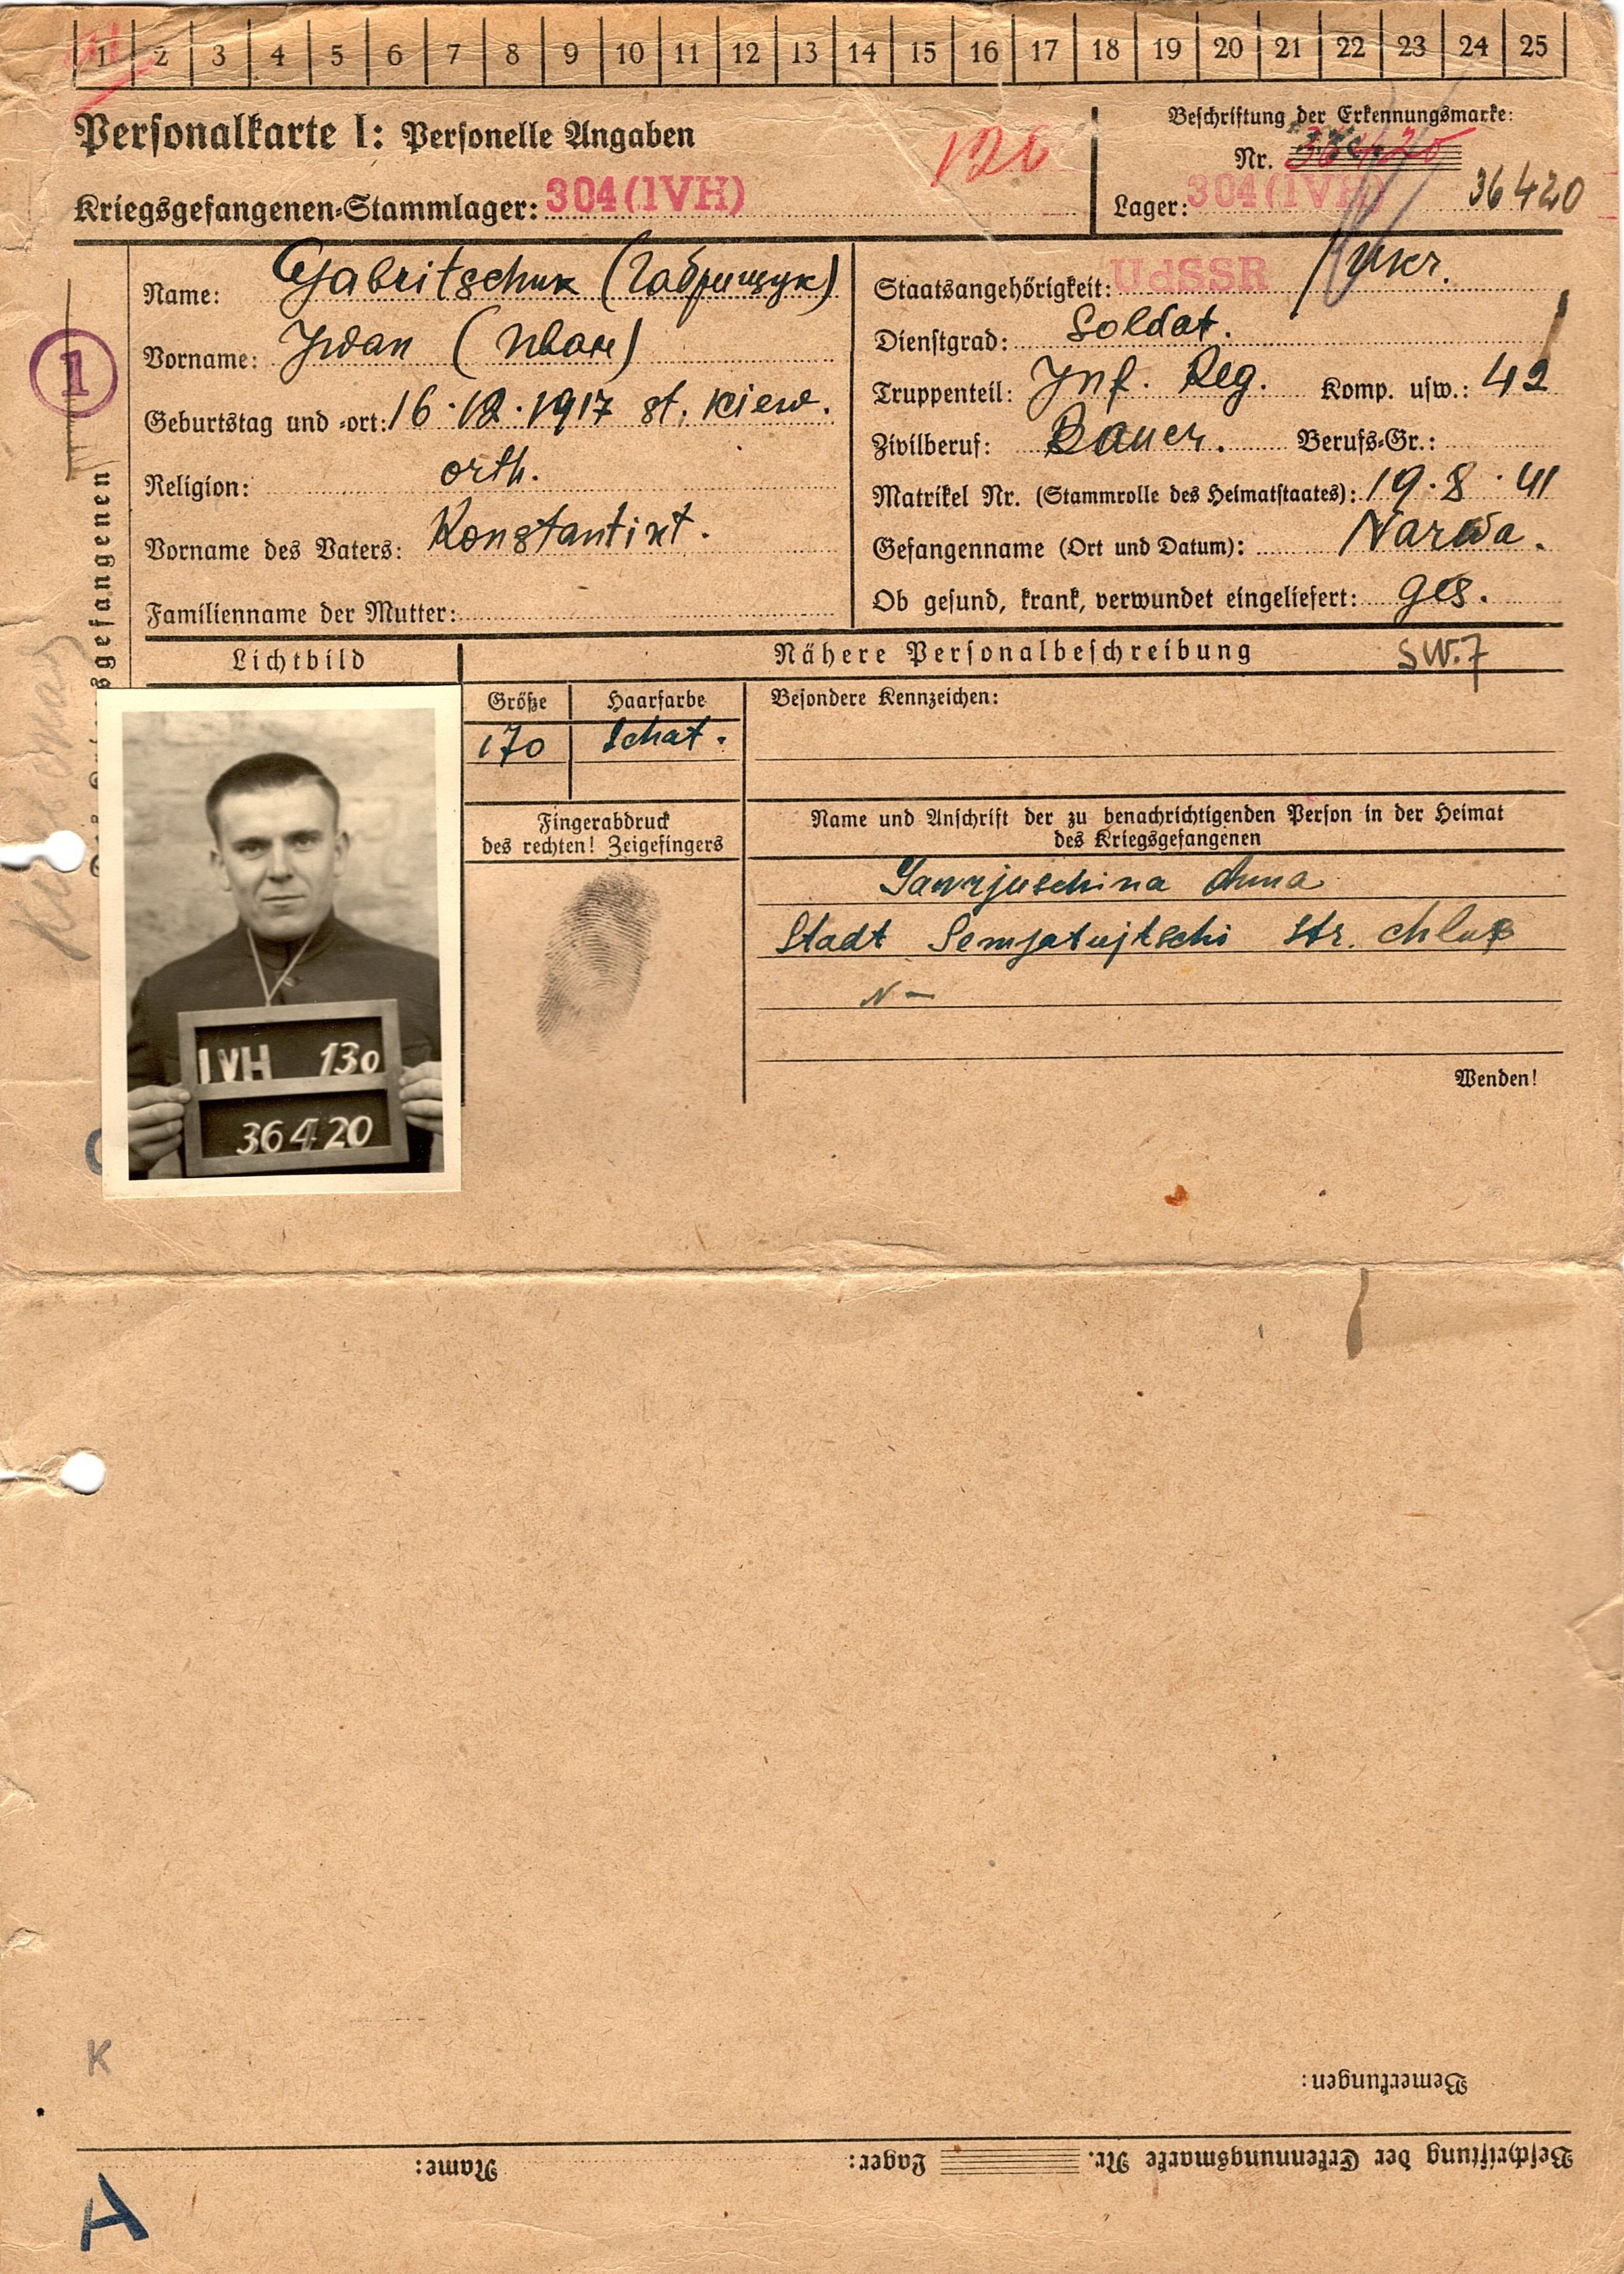 1 2 3 4 5 6 7 8 9 10 11 12 13 14 15 16 17 18 19 20 21 22 23 24 25
Personalkarte I: Personelle Angaben
126
Kriegsgefangenen-Stammlager: 304 (IVH)
Beschriftung der Erkennungsmarke:
Nr.
Lager: 304 (IVH) 36420
1
Name: Gabritschuk (Габрищук)
Vorname: Iwan (Иван)
Geburtstag und -ort: 16.12.1917 st. Kiew.
Religion: orth.
Vorname des Vaters: Konstantint.
Familienname der Mutter:
Staatsangehörigkeit: UdSSR / Ukr.
Dienstgrad: Soldat.
Truppenteil: Inf. Reg. Komp. usw.: 42
Zivilberuf: Bauer. Berufs-Gr.:
Matrikel Nr. (Stammrolle des Heimatstaates): 19.8.41
Gefangenname (Ort und Datum): Narwa.
Ob gesund, krank, verwundet eingeliefert: ges.
Lichtbild
Nähere Personalbeschreibung SW.7
Größe Haarfarbe
170 schat.
Besondere Kennzeichen:
Fingerabdruck
des rechten! Zeigefingers
Name und Anschrift der zu benachrichtigenden Person in der Heimat
des Kriegsgefangenen
Gawrjuschina Anna
Stadt Semjatujtschi Str.
N –
Wenden!
IVH 130
36420
K
Bemerkungen:
Beschriftung der Erkennungsmarke Nr. Lager: Name:
A